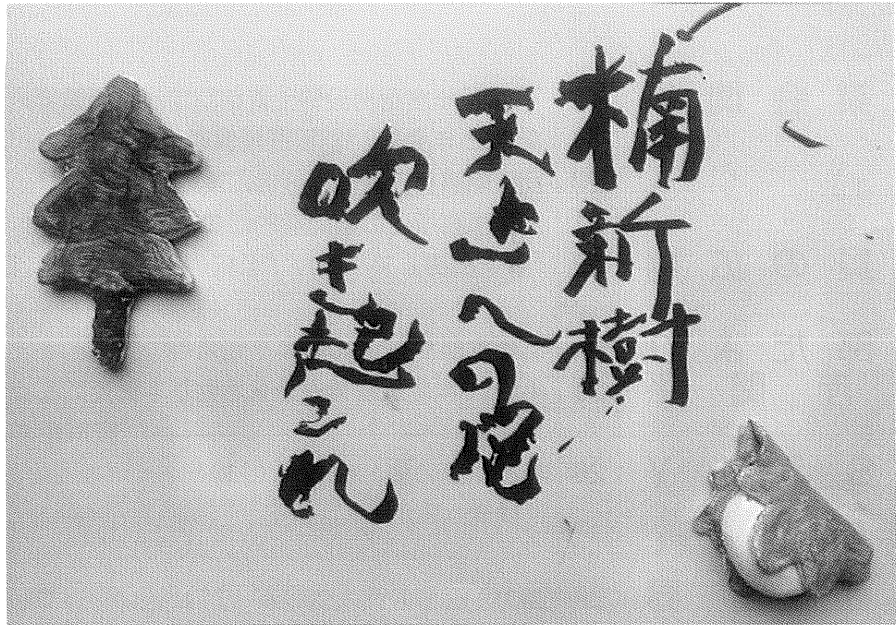 楠新樹
天への
吹き起これ